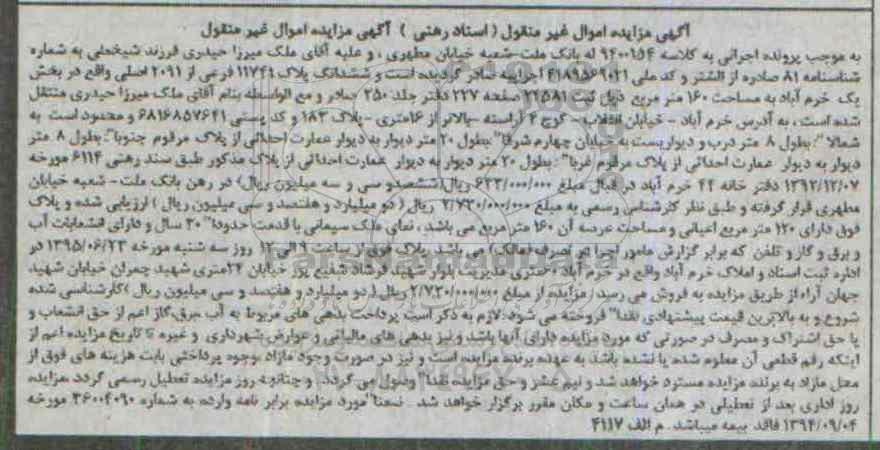 آگهی مزایده اموال غیر منقول ( اسناد رهنی ) آگهی مزایده اموال غیر منقول
به موجب پرونده اجرائی به کلاسه ۹۴۰۰۱۵۴ له بانک ملت-شعبه خیابان مطهری ، و علیه آقای ملک میرزا حیدری فرزند شیخعلی به شماره
شناسنامه ۸۱ صادره از الشتر و کد ملی ۴۱۸۹۵۶۹۰۲۱ اجرائیه صادر گردیده است و ششدانگ پلاک ۱۱۷۴۹ فرعی از ۲۰۹۱ اصلی واقع در بخش
یک خرم آباد به مساحت ۱۶۰ متر مربع ذیل ثبت ۲۲۵۸۱ صفحه ۲۲۷ دفتر جلد ۲۵۰ صادر و مع الواسطه بنام آقای ملک میرزا حیدری منتقل
شده است ، به آدرس خرم آباد - خیابان انقلاب - کوچ ۲ آراسته -بالاتر از ۱۶متری - پلاک ۱۸۳ و کد پستی ۶۸۱۶۸۵۷۶۴۱ و محدود است به
شمالا": بطول ۸ متر درب و دیواریست به خیابان چهارم شرقا" بطول ۲۰ متر دیوار به دیوار عمارت احداثی از پلاک مرقوم جنوبا": بطول ۸ متر
دیوار به دیوار عمارت احداثی از پلاک مرقوم غربا": بطول ۲۰ متر دیوار به دیوار عمارت احداثی از پلاک مذکور طبق سند رهنی ۶۱۱۴ مورخه
۱۳۹۲/۱۲/۰۷ دفتر خانه ۴۴ خرم آباد در قبال مبلغ ۶۳۳/۰۰۰/۰۰۰ ریال(ششصدو سی و سه میلیون ریال) در رهن بانک ملت- شعبه خیابان
مطهری قرار گرفته و طبق نظر کارشناس رسمی به مبلغ ۲/۷۳۰/۰۰۰/۰۰۰ ریال ( دو میلیارد و هفتصد و سی میلیون ریال ) ارزیابی شده و پلاک
فوق دارای ۱۲۰ متر مربع اعیانی و مساحت عرصه آن ۱۶۰ متر مربع می باشد ، نمای ملک سیمانی با قدمت حدودا" ۲۰ سال و دارای انشعابات آب
و برق و گاز و تلفن که برابر گزارش مامور اجرا در تصرف (مالک) می باشد. پلاک فوق از ساعت ۹ الی ۱۲ روز سه شنبه مورخه ۱۳۹۵/۰۶/۲۳ در
اداره ثبت اسناد و املاک خرم آباد واقع در خرم آباد ۶۰متری مدیریت بلوار شهید فرشاد شفیع پور خیابان ۲۴متری شهید چمران خیابان شهید
جهان آراء از طریق مزایده به فروش می رسد/ مزایده از مبلغ ۲/۷۳۰/۰۰۰/۰۰۰ ریال ( دو میلیارد و هفتصد و سی میلیون ریال )کارشناسی شده
شروع و به بالاترین قیمت پیشنهادی نقدا" فروخته می شود. لازم به ذکر است پرداخت بدهی های مربوط به آب ،برق،گاز اعم از حق انشعاب و
یا حق اشتراک و مصرف در صورتی که مورد مزایده دارای آنها باشد و نیز بدهی های مالیاتی و عوارض شهرداری و غیره تا تاریخ مزایده اعم از
اینکه رقم قطعی آن معلوم شده یا نشده باشد به عهده برنده مزایده است و نیز در صورت وجود مازاد ،وجوه پرداختی بابت هزینه های فوق از
محل مازاد به برنده مزایده مسترد خواهد شد و نیم عشر و حق مزایده نقدا" وصول می گردد. و چنانچه روز مزایده تعطیل رسمی گردد ،مزایده
روز اداری بعد از تعطیلی در همان ساعت و مکان مقرر برگزار خواهد شد . ضمنا" مورد مزایده برابر نامه وارده به شماره ۳۶۰۰۴۰۹۰ مورخه
۱۳۹۴/۰۹/۰۴ فاقد بیمه میباشد . م الف ۴۱۱۷